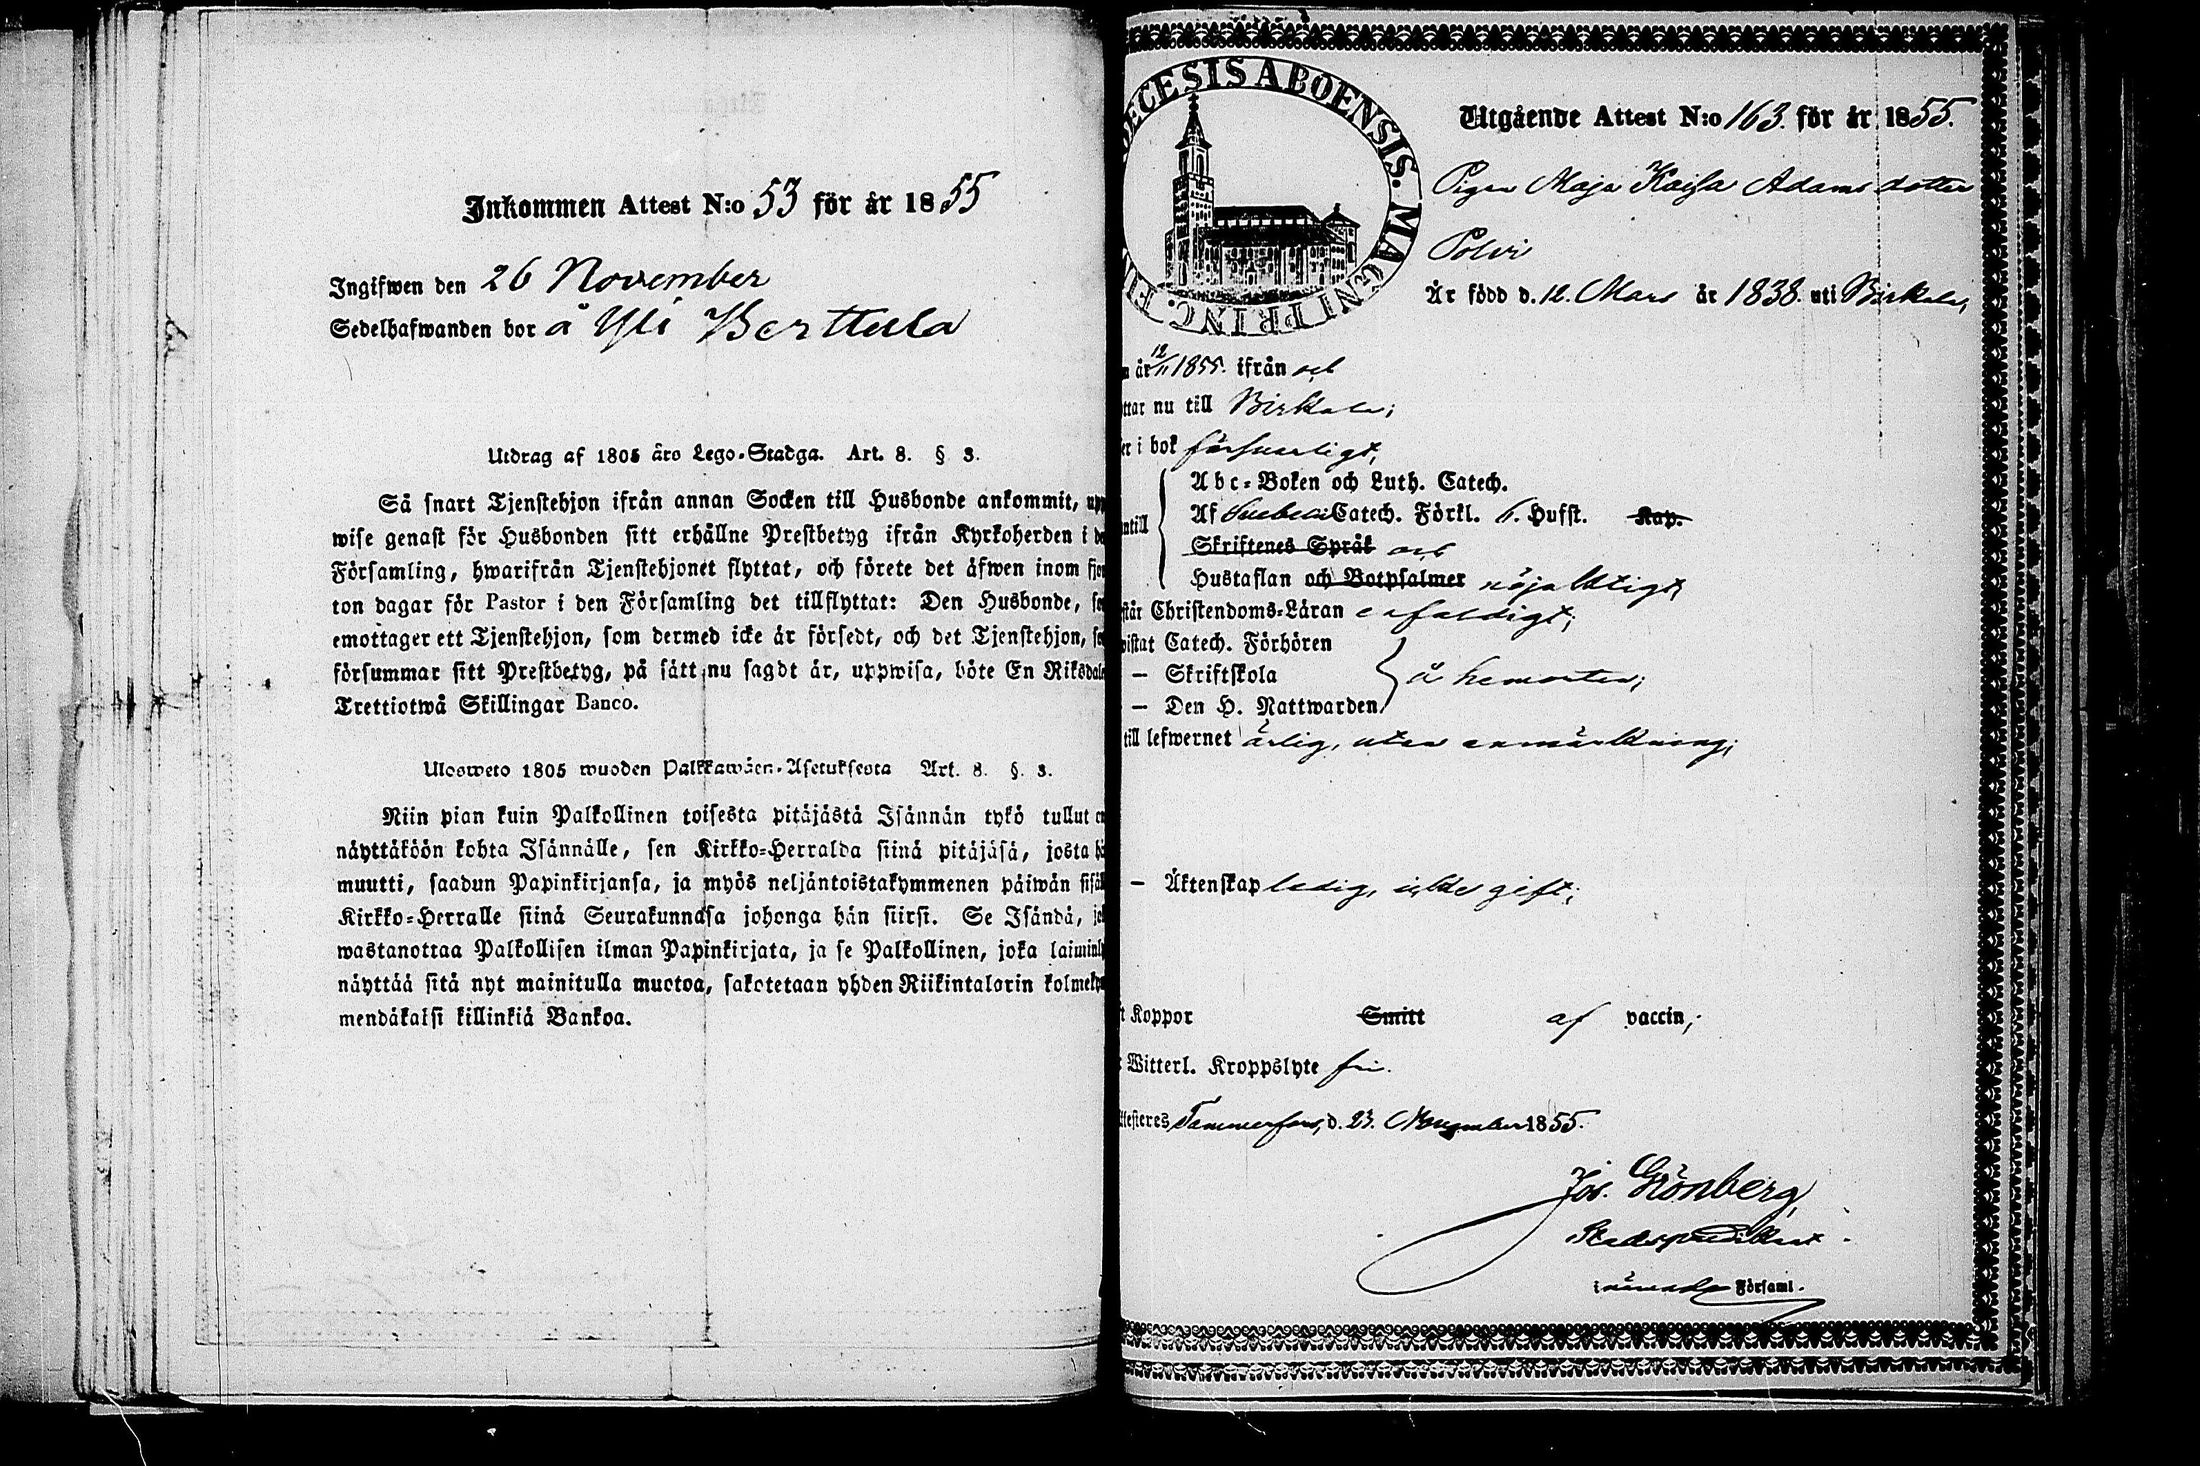 Inkommen Attest N:o 53 för år 1855
Ingifwen den 26 November
Sedelhafwanden bor å Yli Berttula
Utdrag af 1805 års Lego-Stadga. Art. 8. § 3.
Så snart Tjenstehjon ifrån annan Socken till Husbonde ankommit, upp
wise genast för Husbonden sitt erhållne Prestbetyg ifrån Kyrkoherden i de
Församling, hwarifrån Tjenstehjonet flyttat, och förete det äfwen inom fjor
ton dagar för Pastor i den Församling det tillflyttat: Den Husbonde, so
emottager ett Tjenstehjon, som dermed icke är försedt, och det Tjenstehjon, so
försummar sitt Prestbetyg, på sätt nu sagdt är, uppwisa, böte En Riksdale
Trettiotwå Skillingar Banco.
Ulosweto 1805 wuoden Palkkawäen-Asetuksesta Art. 8. §. 3.
Niin pian kuin Palkollinen toisesta pitäjästä Isännän tykö tullut on
näyttäköön kohta Isännälle, sen Kirkko-Herralda siinä pitäjäsä, josta hä
muutti, saadun Papinkirjansa, ja myös neljäntoistakymmenen päiwän sisäl
Kirkko-Herralle siinä Seurakunnasa johonga hän siirsi. Se Isändä, jok
wastanottaa Palkollisen ilman Papinkirjata, ja se Palkollinen, joka laiminly
näyttää sitä nyt mainitulla muotoa, sakotetaan yhden Riikintalarin kolmeky
mendäkaksi killinkiä Bankoa.
ECESIS ABOENSIS. MAGNI PRING. FIN
Utgående Attest N:o 163. för år 1855.
Pigan Maja Kaisa Adamsdotter
Polvi
Är född d. 12. Mars år 1838. uti Birkala,
n år 12/11 1855. ifrån och
ttar nu till Birkala;
er i bok försvarligt,
ntill
Abc-Boken och Luth. Catech.
Af Svebelii Catech. Förkl. 6. Husst. Kap.
Skriftenes Språk och
Hustaflan och Botpsalmer nöjaktigt,
står Christendoms-Läran enfaldigt;
wistat Catech. Förhören
— Skriftskola å hemorten;
— Den H. Nattwarden
till lefwernet ärlig, utan anmärkning;
— Äktenskap ledig, icke gift;
t Koppor Smitt af vaccin;
Witterl. Kroppslyte fri.
ttesteres Tammerfors, d. 23. November 1855.
Jos. Grönberg
Stadspredikant.
i nämnde Församl.